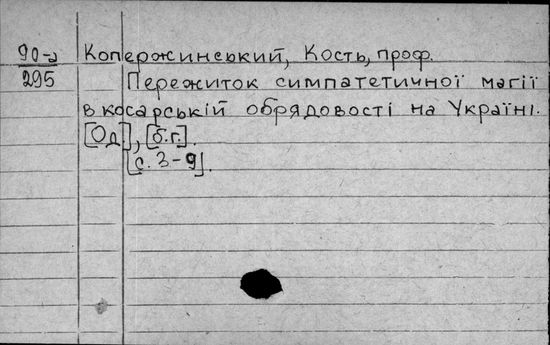 90-а Копержинський, Кость, проф.
295 Пережиток симпатетичної магії
в косарській обрядовості на Україні.
[Од], [б.г.].
[с. 3-9].